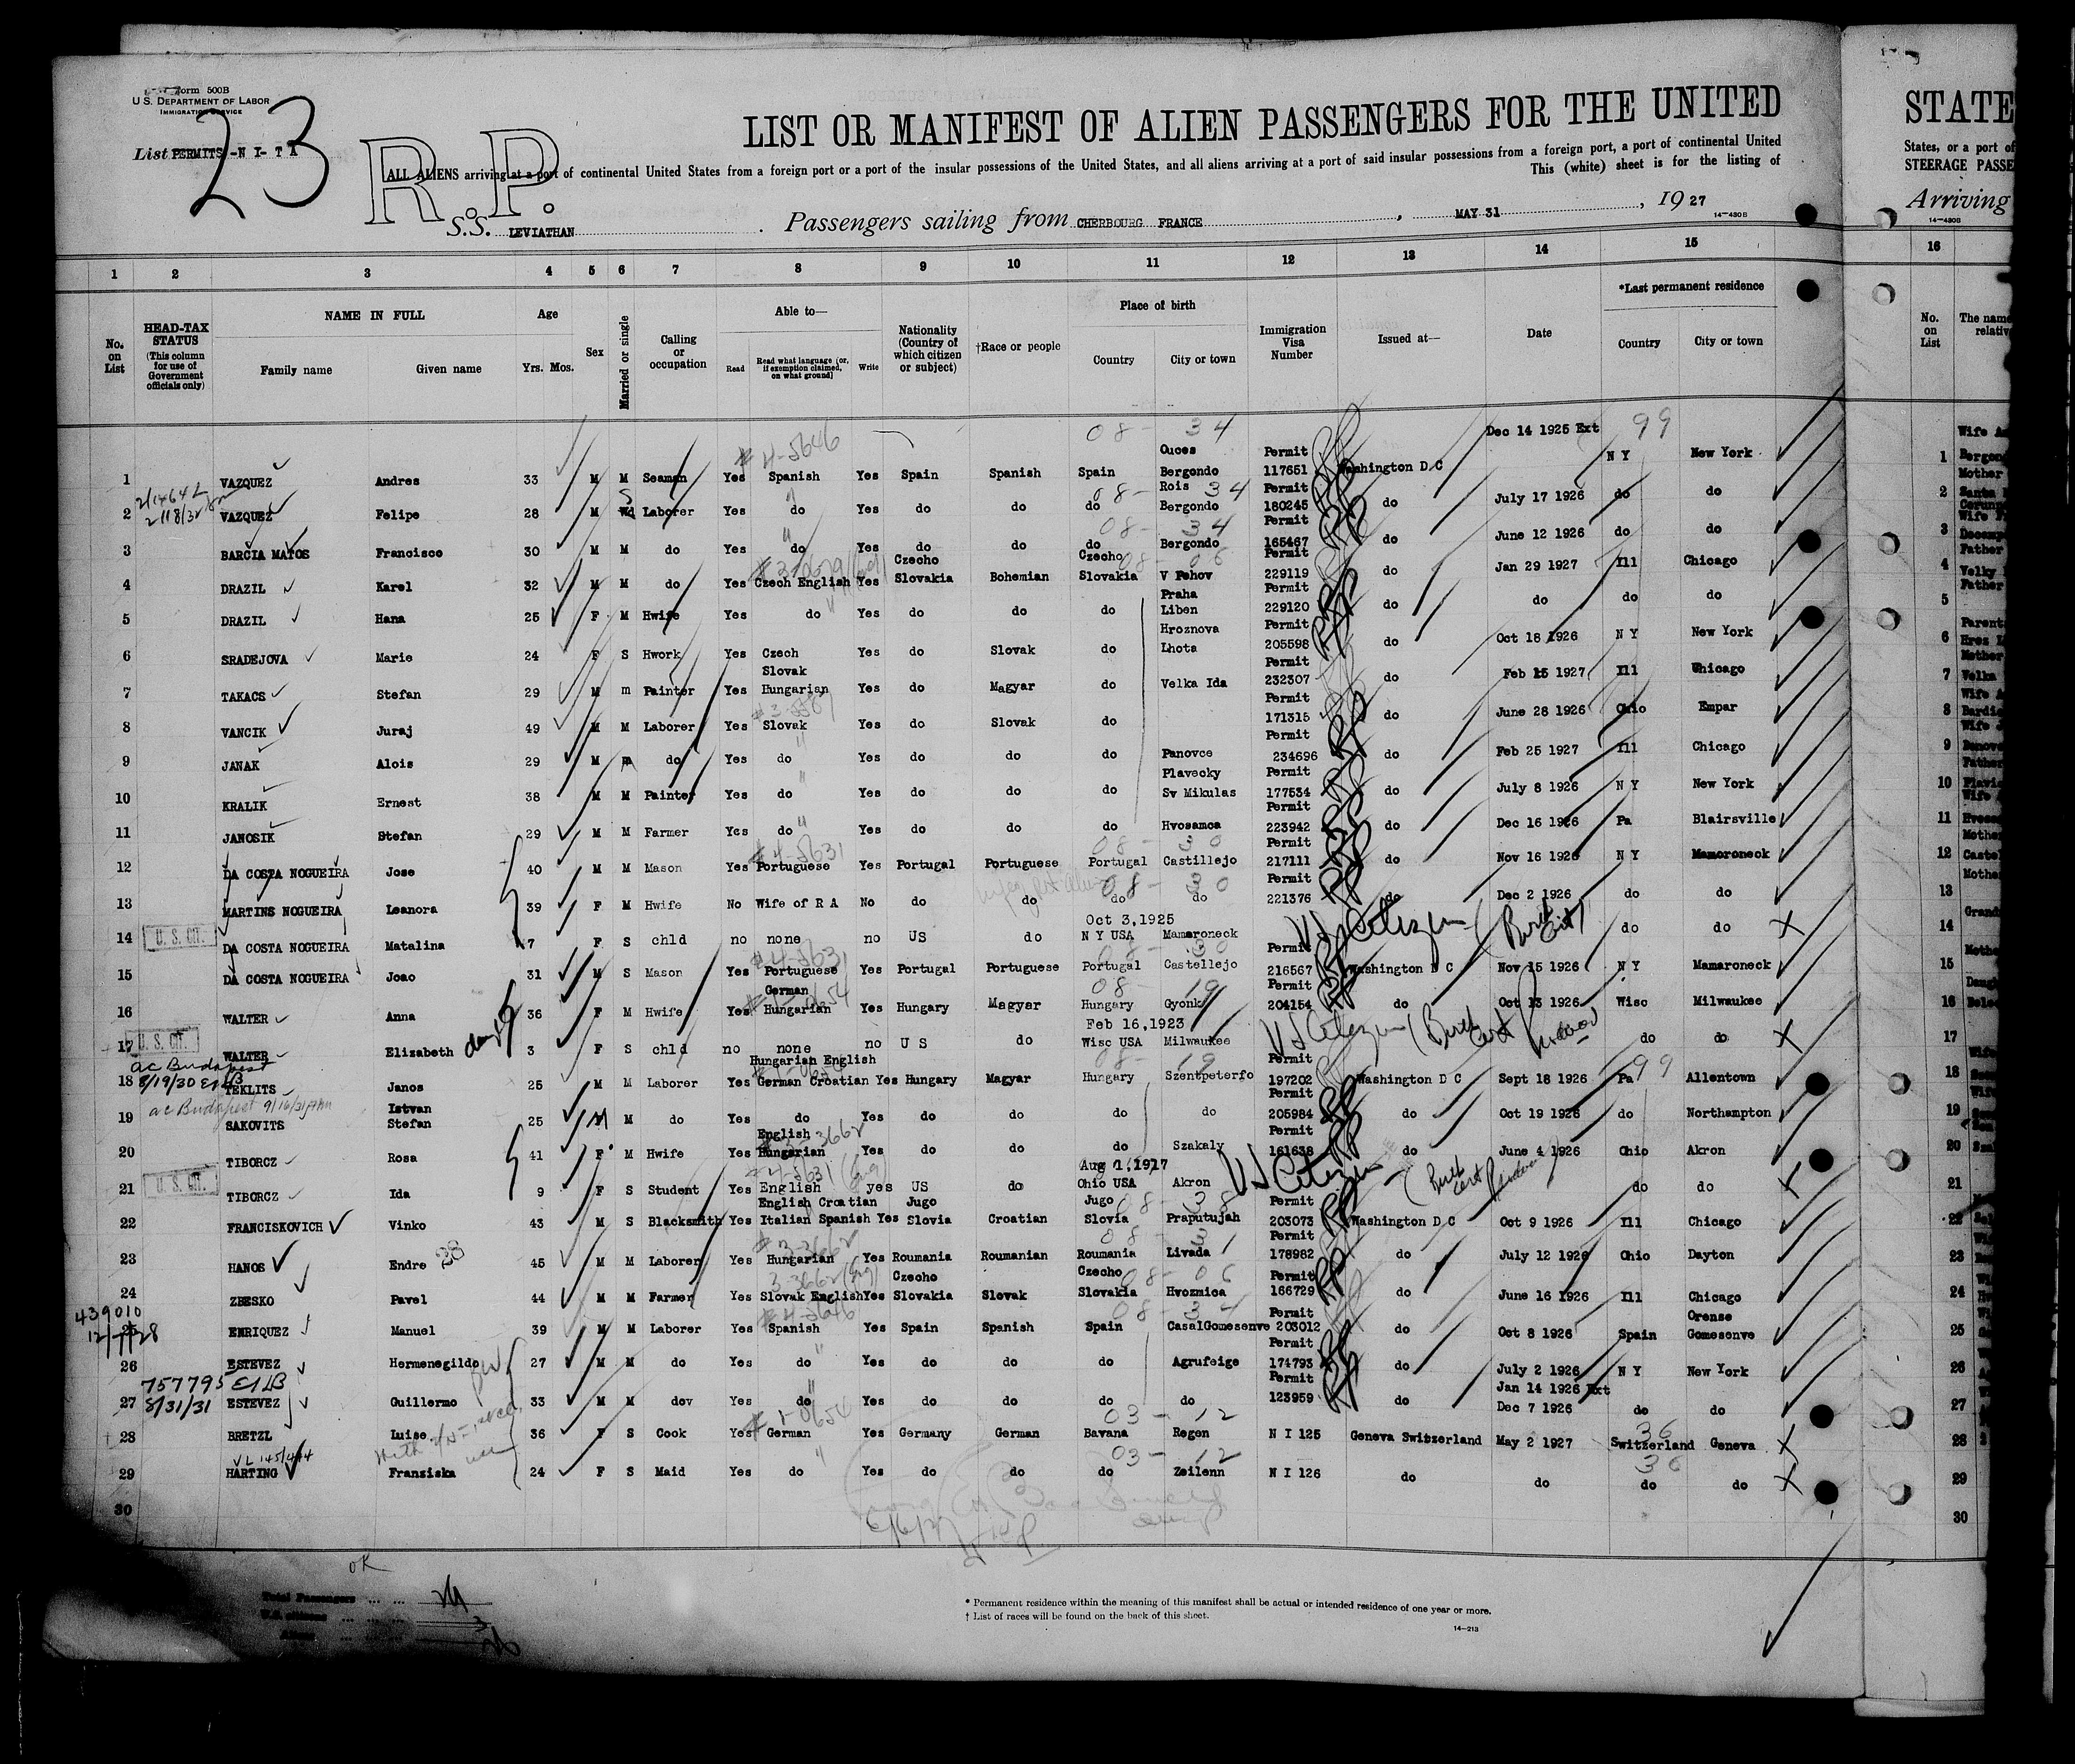 Form 500B
U.S. DEPARTMENT OF LABOR
IMMIGRATION SERVICE
List PERMITS -N I- T A
23
R.P.
LIST OR MANIFEST OF ALIEN PASSENGERS FOR THE UNITED
STATE
ALL ALIENS arriving at a port of continental United States from a foreign port or a port of the insular possessions of the United States, and all aliens arriving at a port of said insular possessions from a foreign port, a port of continental United
States, or a port of
This (white) sheet is for the listing of
STEERAGE PASSE
S.S. LEVIATHAN. Passengers sailing from CHERBOURG FRANCE, MAY 31, 1927
Arriving
14—430B
14—430B
1 2 3 4 5 6 7 8 9 10 11 12 13 14 15 16
No. on List
HEAD-TAX STATUS (This column for use of Government officials only)
NAME IN FULL
Family name Given name
Age
Yrs. Mos.
Sex
Married or single
Calling or occupation
Able to—
Read Read what language [or, if exemption claimed, on what ground] Write
Nationality (Country of which citizen or subject)
†Race or people
Place of birth
Country City or town
Immigration Visa Number
Issued at—
Date
*Last permanent residence
Country City or town
No. on List
The name
relativ
08- 34 Dec 14 1925 Ext 99
#4-5646 Ouces Permit
1 VAZQUEZ Andres 33 M M Seaman Yes Spanish Yes Spain Spanish Spain Bergondo 117651 Washington D C N Y New York 1
08- Rois 34 Permit
2 VAZQUEZ Felipe 28 M S Laborer Yes do Yes do do do Bergondo 180245 do July 17 1926 do do 2
08- 34 Permit
3 BARCIA MATOS Francisco 30 M M do Yes do Yes do do do Bergondo 165467 do June 12 1926 do do 3
Czecho Czecho 08- 06 Permit
4 DRAZIL Karel 32 M M do Yes Czech English Yes Slovakia Bohemian Slovakia V Pehov 229119 do Jan 29 1927 Ill Chicago 4
Praha Permit
5 DRAZIL Hana 25 F M Hwife Yes do Yes do do do Liben 229120 do do do do 5
Hroznova Permit
6 SRADEJOVA Marie 24 F S Hwork Yes Czech Yes do Slovak do Lhota 205598 do Oct 18 1926 N Y New York 6
Slovak Permit
7 TAKACS Stefan 29 M m Painter Yes Hungarian Yes do Magyar do Velka Ida 232307 do Feb 15 1927 Ill Chicago 7
Permit
8 VANCIK Juraj 49 M M Laborer Yes Slovak Yes do Slovak do 171315 do June 28 1926 Ohio Empar 8
Permit
9 JANAK Alois 29 M m do Yes do Yes do do do Panovce 234696 do Feb 25 1927 Ill Chicago 9
Plavecky Permit
10 KRALIK Ernest 38 M M Painter Yes do Yes do do do Sv Mikulas 177534 do July 8 1926 N Y New York 10
Permit
11 JANOSIK Stefan 29 M M Farmer Yes do Yes do do do Hvosamca 223942 do Dec 16 1926 Pa Blairsville 11
#4-5631 08- 30 Permit
12 DA COSTA NOGUEIRA Jose 40 M M Mason Yes Portuguese Yes Portugal Portuguese Portugal Castillejo 217111 do Nov 16 1926 N Y Mamaroneck 12
08- 30 Permit
13 MARTINS NOGUEIRA Leanora 39 F M Hwife No Wife of R A No do do do do 221376 do Dec 2 1926 do do 13
Oct 3,1925
14 U. S. CIT. DA COSTA NOGUEIRA Matalina 7 F S chld no none no US do N Y USA Mamaroneck US Citizen (Birth Cert) do do 14
#4-5631 08- 30 Permit
15 DA COSTA NOGUEIRA Joao 31 M S Mason Yes Portuguese Yes Portugal Portuguese Portugal Castellejo 216567 Washington D C Nov 15 1926 N Y Mamaroneck 15
German 08- 19 Permit
16 WALTER Anna 36 F M Hwife Yes Hungarian Yes Hungary Magyar Hungary Gyonk 204154 do Oct 13 1926 Wisc Milwaukee 16
Feb 16,1923
17 U. S. CIT. WALTER Elizabeth 3 F S chld no none no U S do Wisc USA Milwaukee US Citizen (Birth Cert do do 17
ac Budapest Hungarian English 08- 19 Permit 99
18 8/19/30 TEKLITS Janos 25 M M Laborer Yes German Croatian Yes Hungary Magyar Hungary Szentpeterfo 197202 Washington D C Sept 18 1926 Pa Allentown 18
ac Budapest 9/16/31 Istvan Permit
19 SAKOVITS Stefan 25 M M do Yes do Yes do do do do 205984 do Oct 19 1926 do Northampton 19
English Permit
20 TIBORCZ Rosa 41 F M Hwife Yes Hungarian Yes do do do Szakaly 161638 do June 4 1926 Ohio Akron 20
Aug 1,1917
21 U. S. CIT. TIBORCZ Ida 9 F S Student Yes English yes US do Ohio USA Akron US Citizen - (Birth Cert do do 21
English Croatian Jugo Jugo 08- 38 Permit
22 FRANCISKOVICH Vinko 43 M S Blacksmith Yes Italian Spanish Yes Slovia Croatian Slovia Praputujah 203073 Washington D C Oct 9 1926 Ill Chicago 22
#3-3662 08- 31 Permit
23 HANOS Endre 38 45 M M Laborer Yes Hungarian Yes Roumania Roumanian Roumania Livada 178982 do July 12 1926 Ohio Dayton 23
3-3662 (Eng) Czecho Czecho 08- 06 Permit
24 ZBESKO Pavel 44 M M Farmer Yes Slovak English Yes Slovakia Slovak Slovakia Hvoznica 166729 do June 16 1926 Ill Chicago 24
439010 #4-5646 08- 34 Permit Orense
25 12/7/28 ENRIQUEZ Manuel 39 M M Laborer Yes Spanish Yes Spain Spanish Spain CasalGomesenve 203012 do Oct 8 1926 Spain Gomesenve 25
Permit
26 ESTEVEZ Hermenegildo 27 M M do Yes do Yes do do do Agrufeige 174793 do July 2 1926 N Y New York 26
757795 Permit Jan 14 1926 Ext
27 8/31/31 ESTEVEZ Guillermo 33 M M dov Yes do Yes do do do do 123959 do Dec 7 1926 do do 27
#1-0654 03- 12 36
28 BRETZL Luise 36 F S Cook Yes German Yes Germany German Bavana Regen N I 125 Geneva Switzerland May 2 1927 Switzerland Geneva 28
03- 12 36
29 HARTING Franziska 24 F S Maid Yes do Yes do do do Zeilenn N I 126 do do do do 29
30 30
6/6/27
OK
Total Passengers
U.S. citizens 3
Aliens
* Permanent residence within the meaning of this manifest shall be actual or intended residence of one year or more.
† List of races will be found on the back of this sheet.
14—213